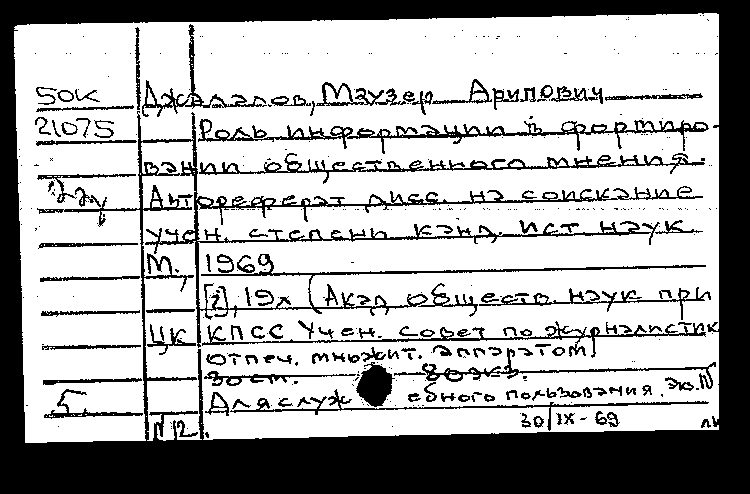 50к Джалалов, Маузер Арипович
21075 Роль информации в формиро-
вании общественного мнения.
Автореферат дисс. на соискание
учен. степени канд. ист наук
М., 1969
[2], 19л (Акад обществ. наук при
ЦК КПСС. Учен. совет по журналистик
отпеч. множит. аппаратом)
80экз.
5. Для служебного пользования. Экз. N
N 12. 30/IX-69